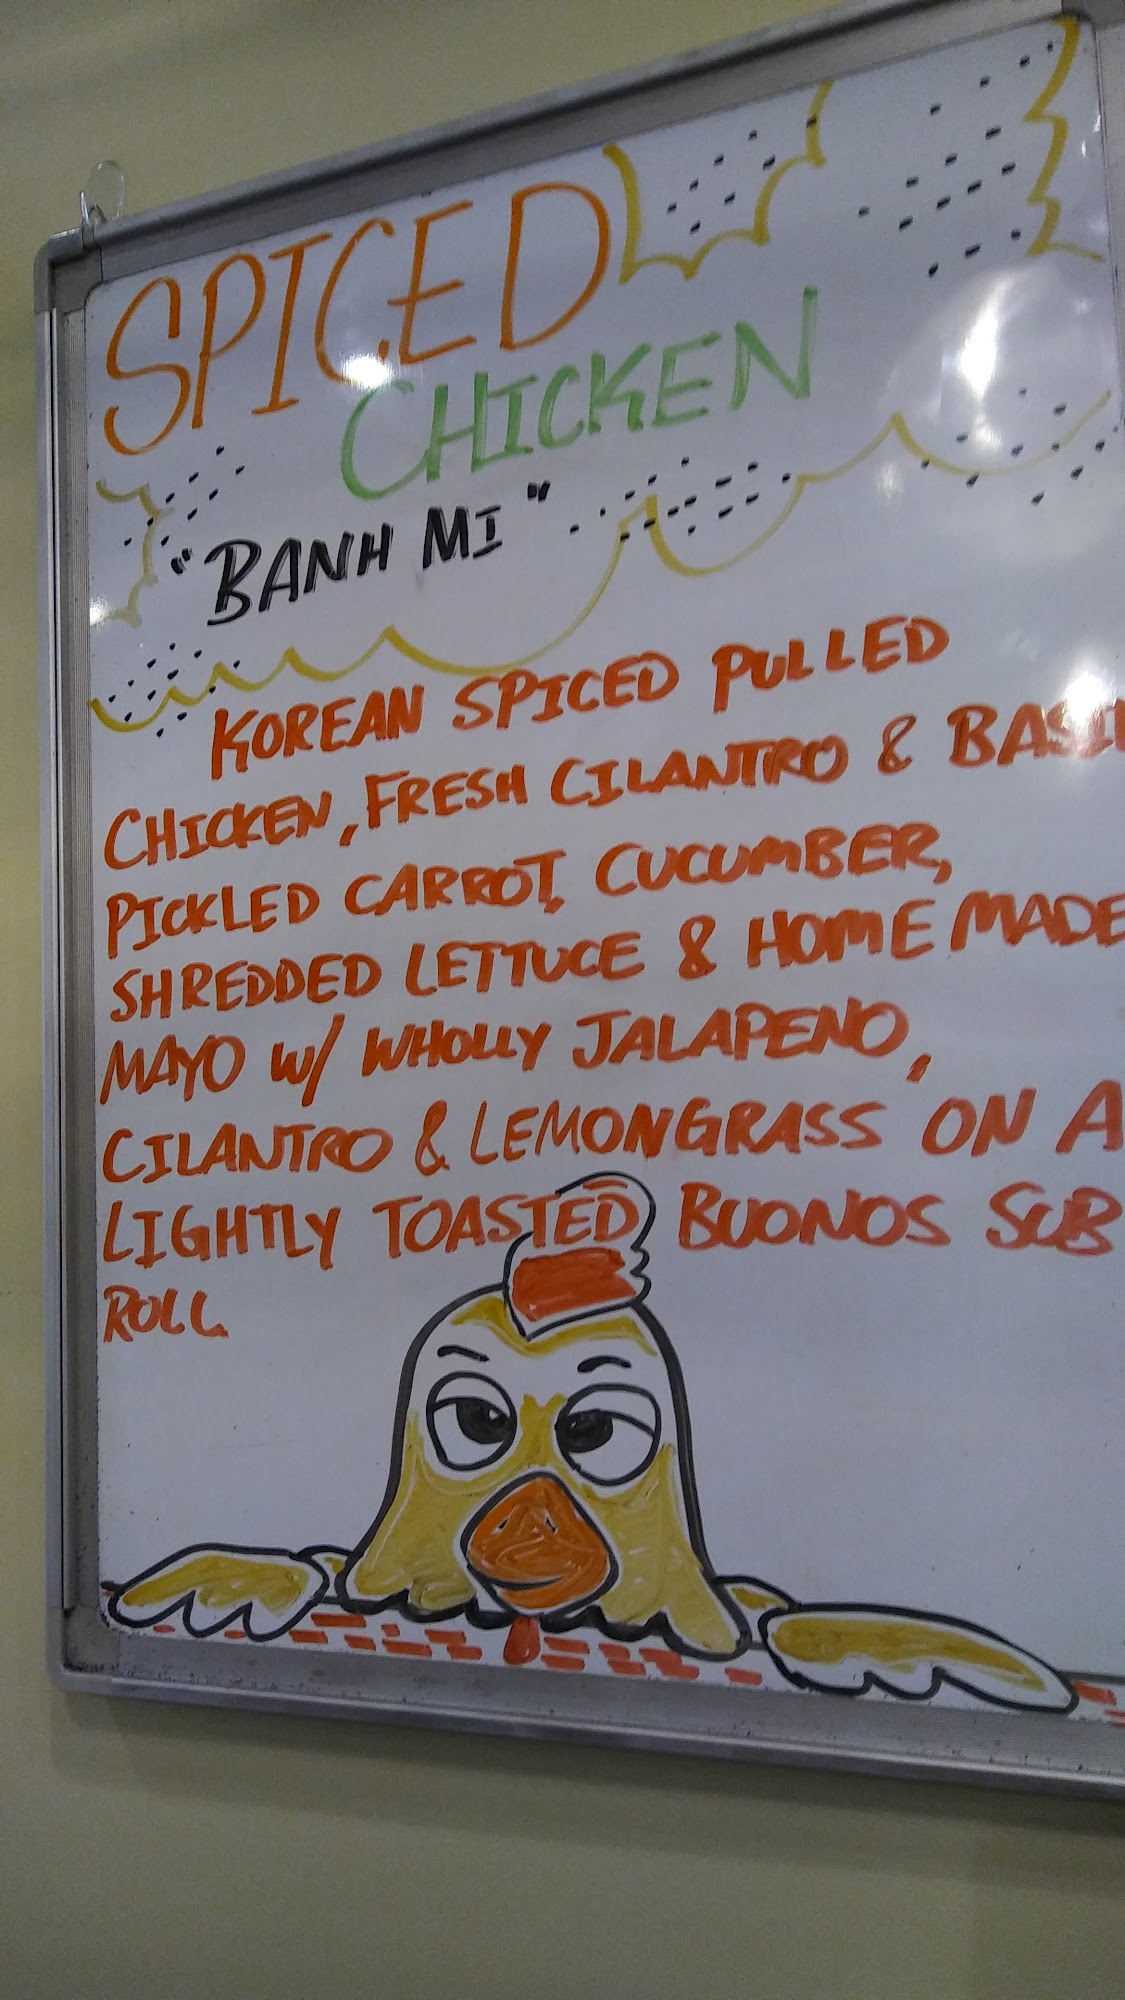 SPICED
CHICKEN
"BANH MI"
KOREAN SPICED PULLED
CHICKEN, FRESH CILANTRO & BASIL
PICKLED CARROT, CUCUMBER,
SHREDDED LETTUCE & HOME MADE
MAYO W/ WHOLLY JALAPENO,
CILANTRO & LEMONGRASS ON A
LIGHTLY TOASTED BUONOS SUB
ROLL